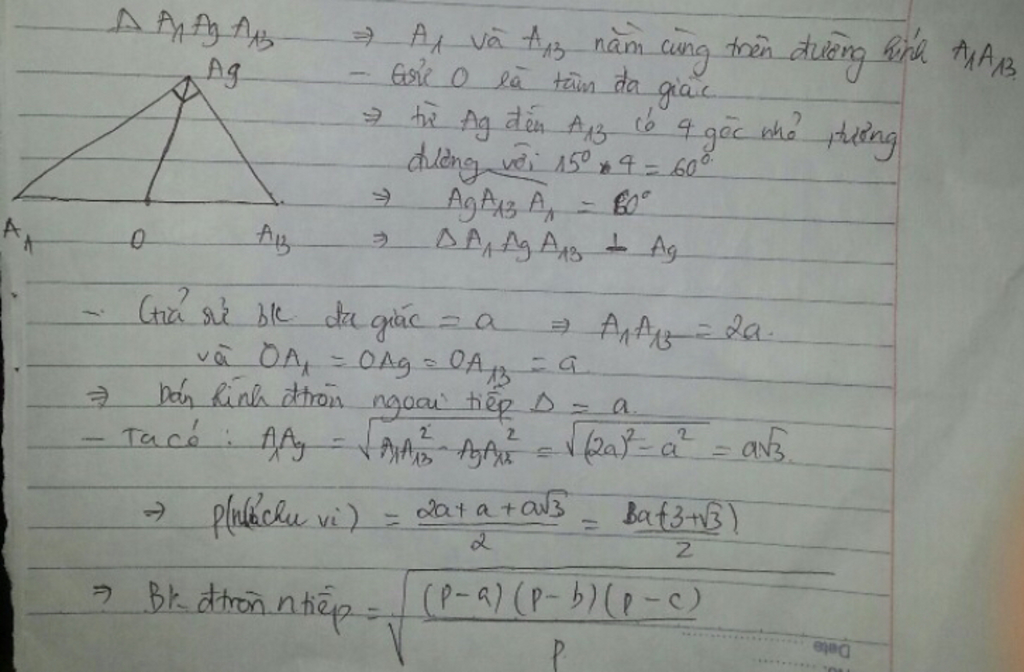 Δ A₁ A₉ A₁₃ ⇒ A₁ và A₁₃ nằm cùng trên đường kính A₁A₁₃
A₉ - Gsử O là tâm đa giác
⇒ từ A₉ đến A₁₃ có 4 góc nhỏ, tương
đương với 15° * 4 = 60°
⇒ A₉A₁₃A₁ = 60°
A₁ O A₁₃ ⇒ Δ A₁A₉A₁₃ ⊥ A₉
- Giả sử bk đa giác = a ⇒ A₁A₁₃ = 2a.
và OA₁ = OA₉ = OA₁₃ = a
⇒ bán kính đtròn ngoại tiếp Δ = a
- Ta có : A₁A₉ = √(A₁A₁₃² - A₉A₁₃²) = √((2a)² - a²) = a√3.
⇒ p(nửa chu vi) = (2a + a + a√3)/2 = a(3+√3)/2
⇒ Bk đtròn ntiếp = √((p-a)(p-b)(p-c)/p)
Date